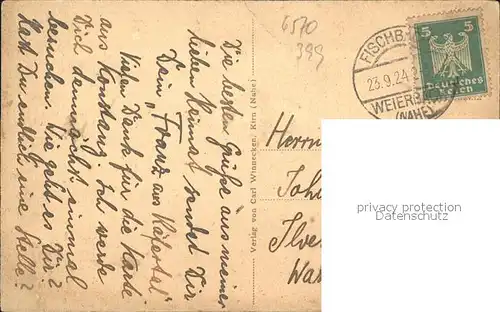 Die besten Grüße aus meiner
lieben Heimat sendet Dir
Dein "Franz aus Käfertal"
Vielen Dank für die Karte
aus Konstanz. Ich werde
Dich demnächst einmal
besuchen. Wie geht es Dir?
Hast Du endlich eine Stelle?
Verlag von Carl Winnecken, Kirn (Nahe)
6570
399
FISCHB
23.9.24
WEIERB
(NAHE)
5 5
Deutsches
Reich
Herrn
Joh
Ilve
privacy protection
Datenschutz